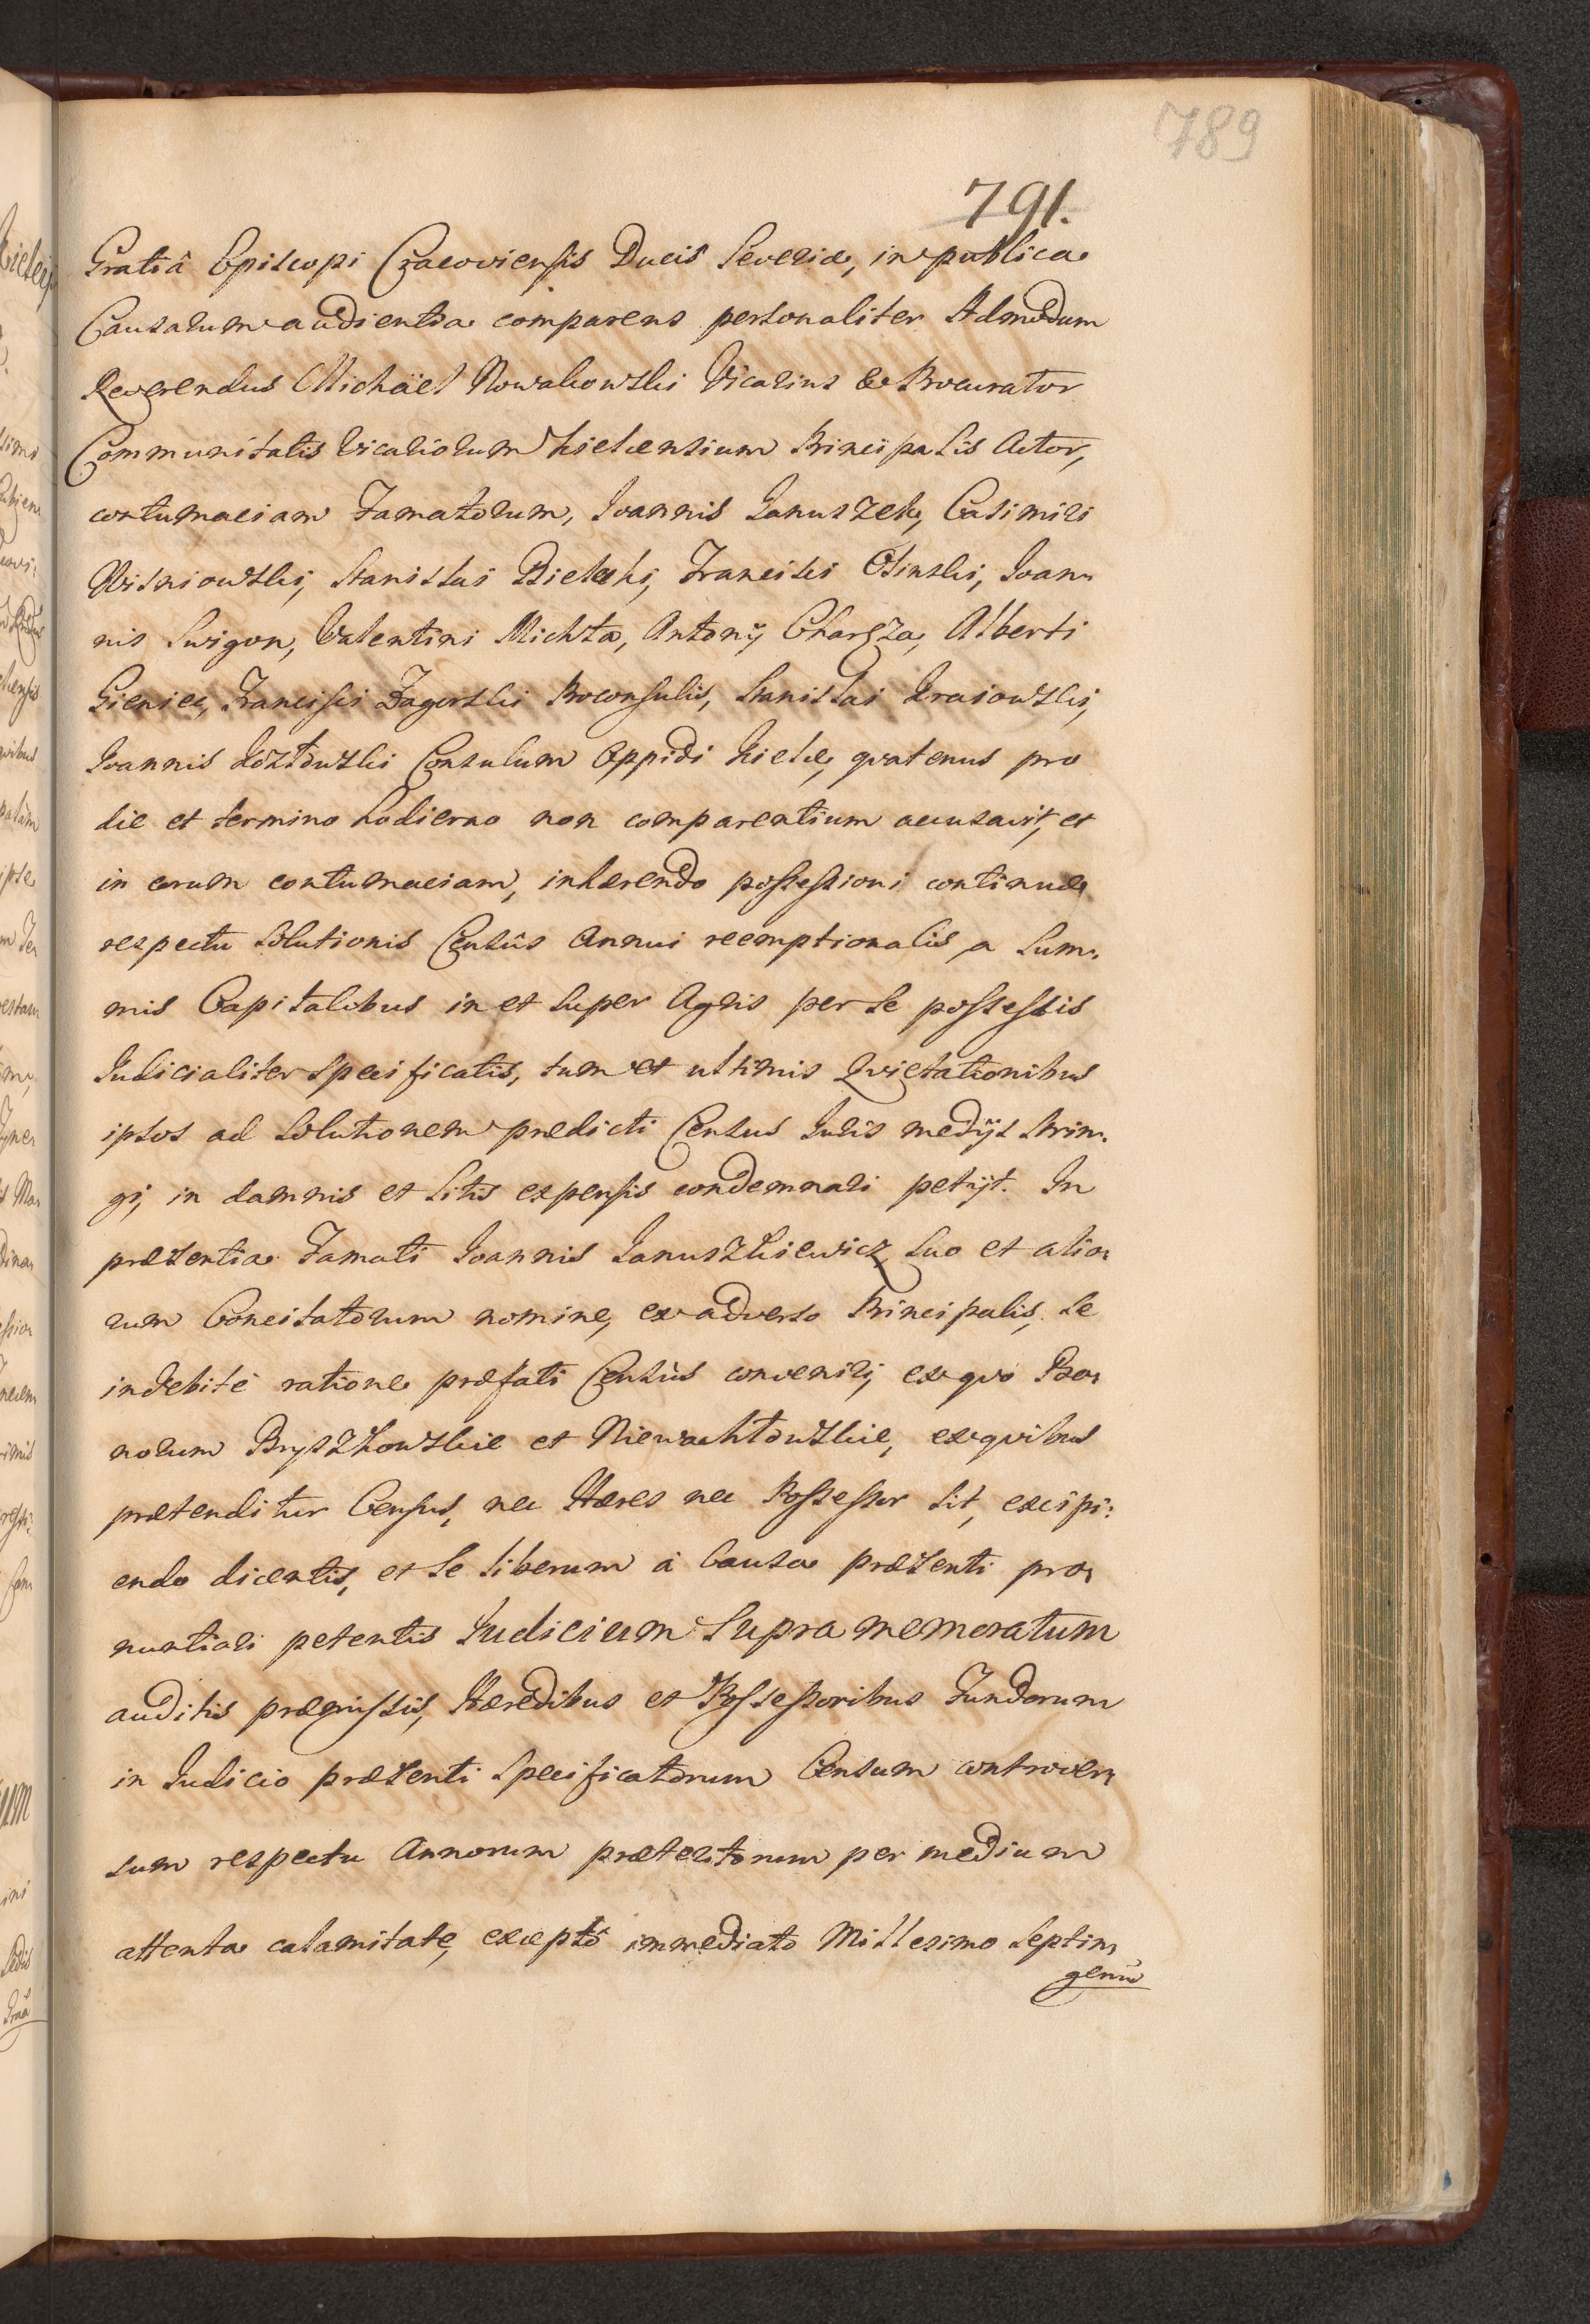 789
791.
Gratiâ Episcopi Cracoviensis Ducis Severiæ, in publica
Causarum audientia comparens personaliter Admodum
Reverendus Michäel Nowakowski Vicarius & Procurator
Communitatis Vicariorum Kielcensium Principalis Actor,
contumaciam Famatorum, Ioannis Januszek, Casimiri
Wisniowski, Stanislai Bielecki, Francisci Osinski, Joan„
nis Swigon, Valentini Michta, Antonij Charęza, Alberti
Gieniec, Francisci Zagorski Proconsulis, Stanislai Kraiowski,
Joannis Kozłowski Consulum Oppidi Kielce, qvatenus pro
die et termino hodierno non comparentium accusavit, et
in eorum contumaciam, inhærendo possessioni continuæ
respectu Solutionis Censûs Annui reemptionalis, a Sum„
mis Capitalibus in et super Agris per se possessis
Iudicialiter specificatis, tum et ultimis Qvietationibus
ipsos ad Solutionem prædicti Census Iuris medijs strin„
gi, in damnis et Litis expensis condemnari petijt. In
præsentia Famati Joannis Januszkiewicz suo et alio„
rum Concitatorum nomine, ex adverso Principalis, se
indebitè ratione præfati Censùs conveniri, ex qvo Bo„
norum Bryszkowskie et Niewachłowskie, ex qvibus
prætenditur Census, nec Hæres nec Possessor sit, excipi„
endo dicentis, et se liberum à Causa præsenti pro„
nuntiari petentis Iudicium Supra memoratum
auditis præmissis, Hæredibus et Possessoribus Fundorum
in Iudicio præsenti specificatorum Censum controver„
sum respectu Annorum præteritorum per medium
attenta calamitate, exceptô immediato Millesimo Septin„
genŏ